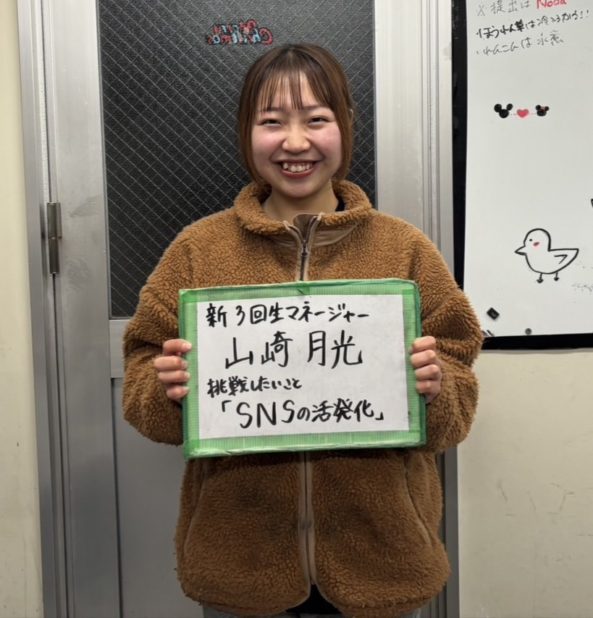 新3回生マネージャー
山崎 月光
挑戦したいこと
「SNSの活発化」
※提出は Noda
ほうれん草は冷えるから!!
れんこんは水煮